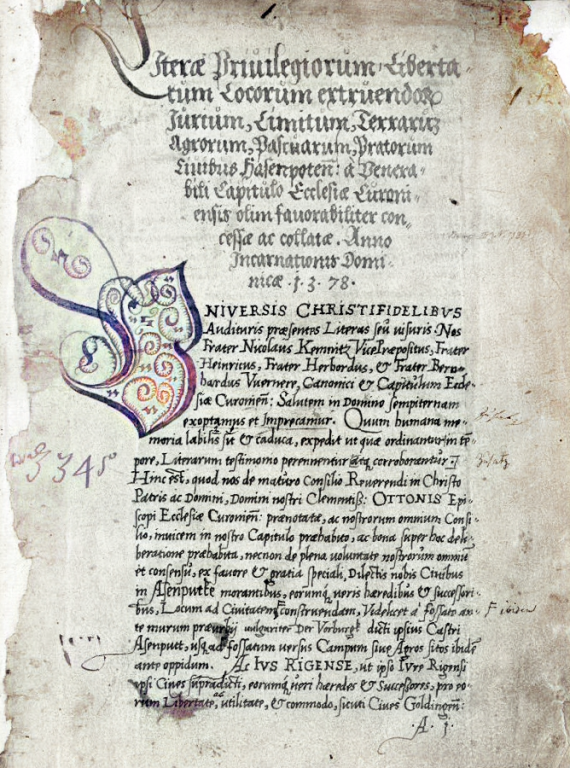 Literæ Priuilegiorum, Liberta-
tum Locorum extruendor
Jurium, Limitum, Terrarum
Agrorum, Pascuarum, Pratorum
Ciuibus Hasenpoteñ: à Venera-
bili Capitulo Ecclesiæ Curoni-
ensis olim fauorabiliter con-
cessæ ac collatæ. Anno
Incarnationis Domi-
nicæ .1.3.78.
VNIVERSIS CHRISTIFIDELIBVS
Audituris præsentes Literas seu uisuris. Nos
Frater Nicolaus Kemnitz VicePræpositus, Frater
Heinricus, Frater Herbordus, & Frater Bern-
hardus Vuernere, Canonici & Capitulum Eccle-
siæ Curonieñ: Salutem in Domino sempiternam
exoptamus et Imprecamur. Quum humana me-
moria labilis sit & caduca, expedit ut quæ ordinantur in tē-
pore, Literarum testimonio perennentur atq corroborentur.
Hinc est, quod nos de maturo Consilio Reuerendi in Christo
Patris ac Domini, Domini nostri Clementiss: OTTONIS Epi-
scopi Ecclesiæ Curonieñ: prænotatæ, ac nostrorum omnium Consi-
lio, inuicem in nostro Capitulo præhabito, ac bona super hoc deli-
beratione præhabita, necnon de plena voluntate nostrorum omniū
et consensu, ex fauore & gratia speciali, Dilectis nobis Ciuibus
in Asenputte morantibus, eorumq ueris hæredibus & successori-
bus, Locum ad Ciuitatem construendam, Videlicet à fossato an-
te murum præurbij uulgariter Der Vorburgk dicti ipsius Castri
Asenputt, usq ad fossatum versus Campum siue Agros sitos ibidē
ante oppidum. Ac IVS RIGENSE, ut ipso Iure Rigensi
ipsi Ciues supradicti, eorumq ueri hæredes & Successores, pro eo-
rum Libertate, utilitate, & commodo, sicuti Ciues Goldingeñ:
.A. j.
3345